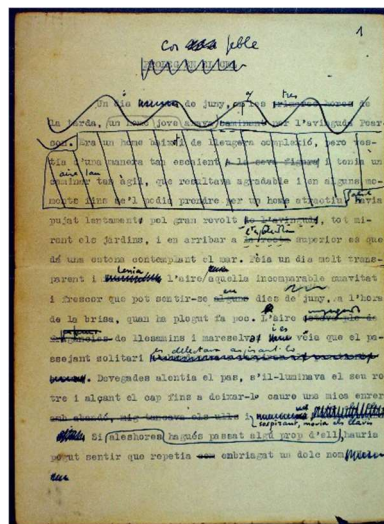 1
cos feble
tres
Un dia de juny, a les primeres hores de
la tarda, un home jove anava caminant per l'avinguda Pear-
son. Era un home baixet, de lleugera complexió, però ves-
tia d'una manera tan escaient a la seva figura i tenia un
aire tan
caminar tan àgil, que resultava agradable i en alguns mo-
ments fins se'l podia prendre per un home atractiu. Havia
pujat lentament pel gran revolt de l'avinguda, tot mi-
rant els jardins, i en arribar a la recta superior es que-
dà una estona contemplant el mar. Feia un dia molt trans-
tenia
parent i l'aire aquella incomparable suavitat
i frescor que pot sentir-se alguns dies de juny, a l'hora
de la brisa, quan ha plogut fa poc. L'aire
de llesamins i mareselva i es veia que el pa-
es delectava aspirant-lo
ssejant solitari
Devegades alentia el pas, s'il-luminava el seu ros
tre i alçant el cap fins a deixar-lo caure una mica enrer
amb abandó, mig tancava els ulls i
sospirant, movia els llavis
Si aleshores hagués passat algú prop d'ell, hauria
pogut sentir que repetia embriagat un dolç nom